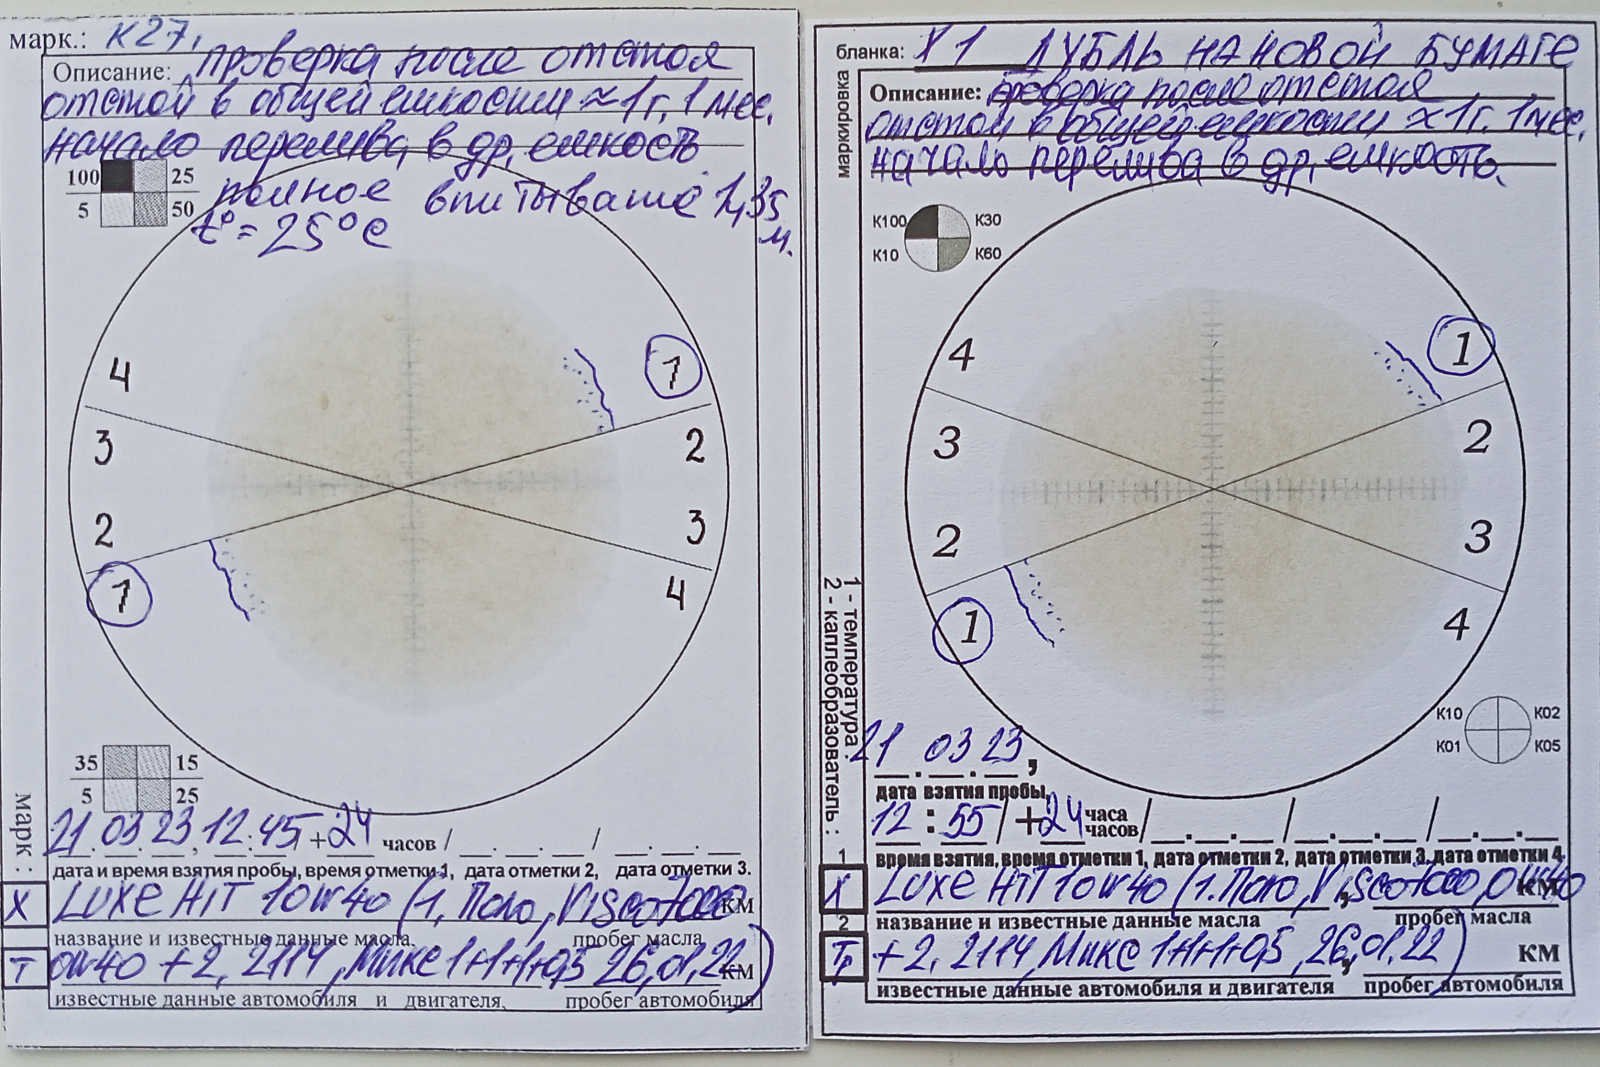 марк.: К27,
Описание: проверка после отстоя
отстой в общей емкости ≈1г. 1 мес.
начало перелива в др. емкость
полное впитывание 1,35 м.
t°= 25°С
100 25
5 50
4 1
3 2
2 3
1 4
35 15
5 25
марк :
21.03.23, 12:45 +24 часов /
дата и время взятия пробы, время отметки 1, дата отметки 2, дата отметки 3.
Х LUXE HIT 10W40 (1. Поло, Visco7000 КМ
название и известные данные масла, пробег масла
Т 0W40 +2. 2114, Микс 1+1+1+0,5 26.01.22) КМ
известные данные автомобиля и двигателя, пробег автомобиля
бланка: Х1 ДУБЛЬ НА НОВОЙ БУМАГЕ
маркировка
Описание: проверка после отстоя
отстой в общей емкости ≈1г. 1 мес.
начало перелива в др. емкость.
К100 К30
К10 К60
4 1
3 2
2 3
1 4
К10 К02
К01 К05
1 - температура
2 - каплеобразователь :
21.03.23,
дата взятия пробы,
12:55 / +24 часа часов /
1 время взятия, время отметки 1, дата отметки 2, дата отметки 3, дата отметки 4.
Х LUXE HIT 10W40 (1. Поло, Visco7000, 0W40 КМ
2 название и известные данные масла пробег масла
+2. 2114, Микс 1+1+1+0,5, 26.01.22) КМ
известные данные автомобиля и двигателя пробег автомобиля